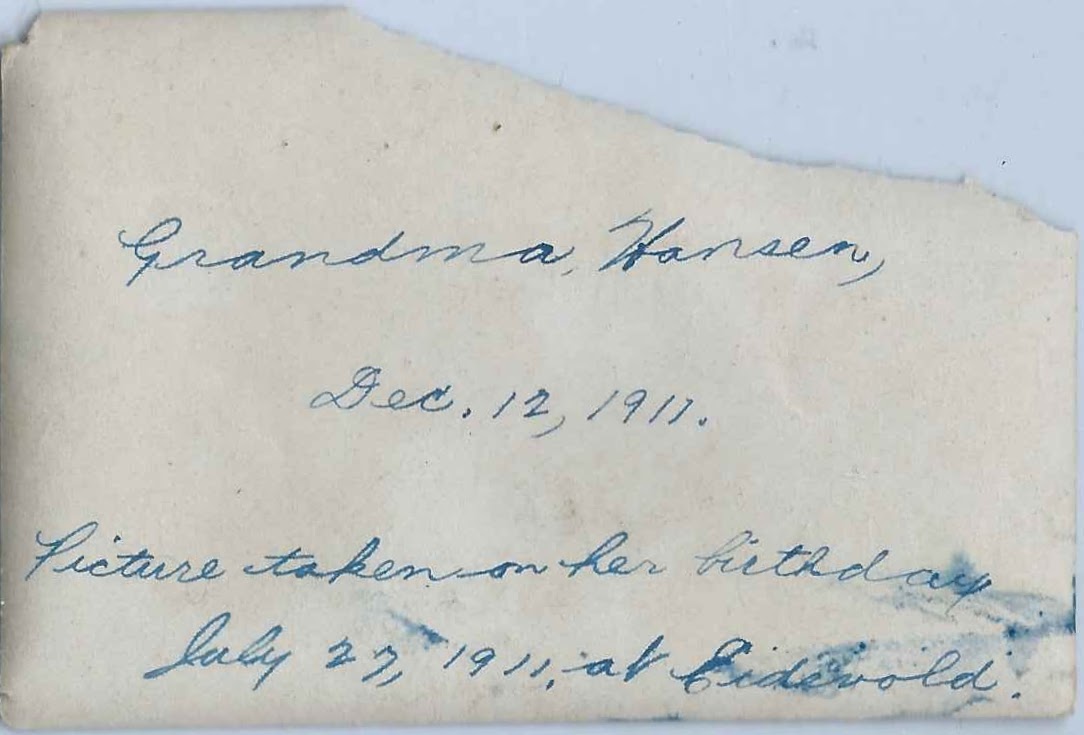 Grandma, Hansen,
Dec. 12, 1911.
Picture taken on her birthday
July 27, 1911, at Eidsvold.